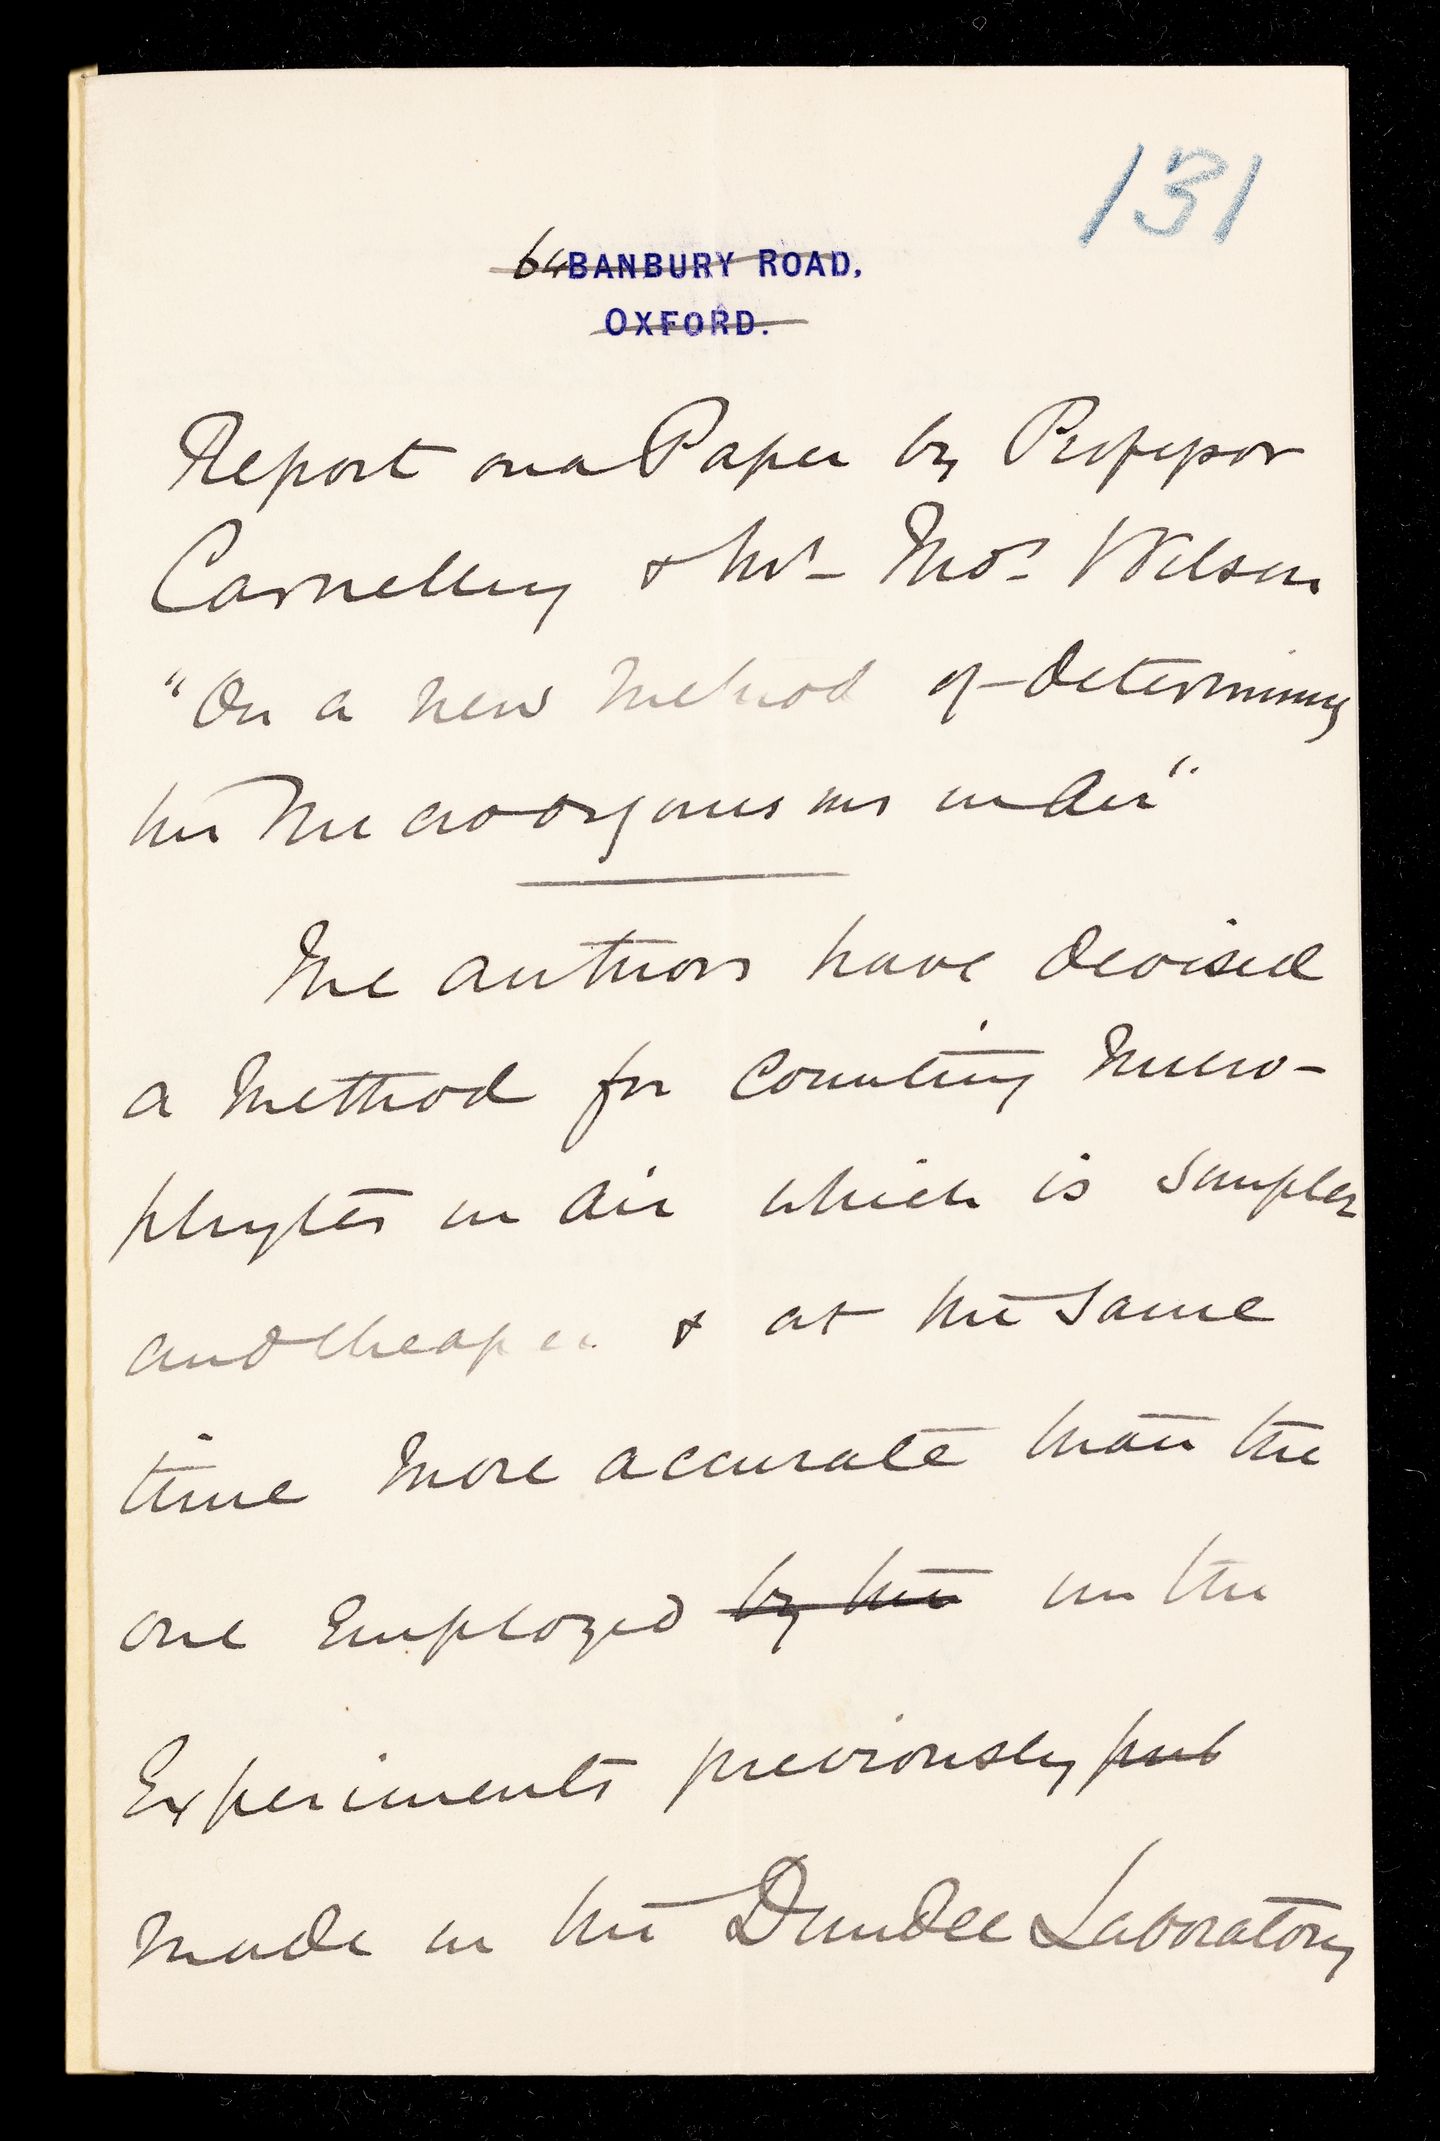 131
64 BANBURY ROAD,
OXFORD.
Report on a Paper by Professor
Carnelley & Mr. Thos. Wilson
"On a new Method of determining
the Microorganisms in Air"
The authors have devised
a Method for counting Micro-
phytes in Air which is simpler
and cheaper & at the same
time more accurate than the
one Employed by the in the
Experiments previously pub
made in the Dundee Laboratory